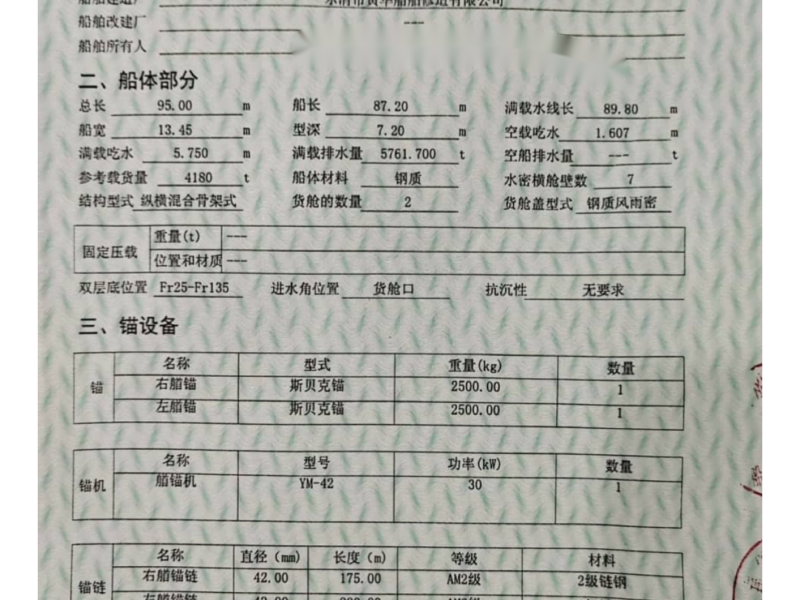 船舶改建厂 ---
船舶所有人
二、船体部分
总长 95.00 m 船长 87.20 m 满载水线长 89.80 m
船宽 13.45 m 型深 7.20 m 空载吃水 1.607 m
满载吃水 5.750 m 满载排水量 5761.700 t 空船排水量 --- t
参考载货量 4180 t 船体材料 钢质 水密横舱壁数 7
结构型式 纵横混合骨架式 货舱的数量 2 货舱盖型式 钢质风雨密
固定压载 重量(t) ---
位置和材质 ---
双层底位置 Fr25-Fr135 进水角位置 货舱口 抗沉性 无要求
三、锚设备
锚 名称 型式 重量(kg) 数量
右艏锚 斯贝克锚 2500.00 1
左艏锚 斯贝克锚 2500.00 1
锚机 名称 型号 功率(kW) 数量
艏锚机 YM-42 30 1
锚链 名称 直径(mm) 长度(m) 等级 材料
右艏锚链 42.00 175.00 AM2级 2级链钢